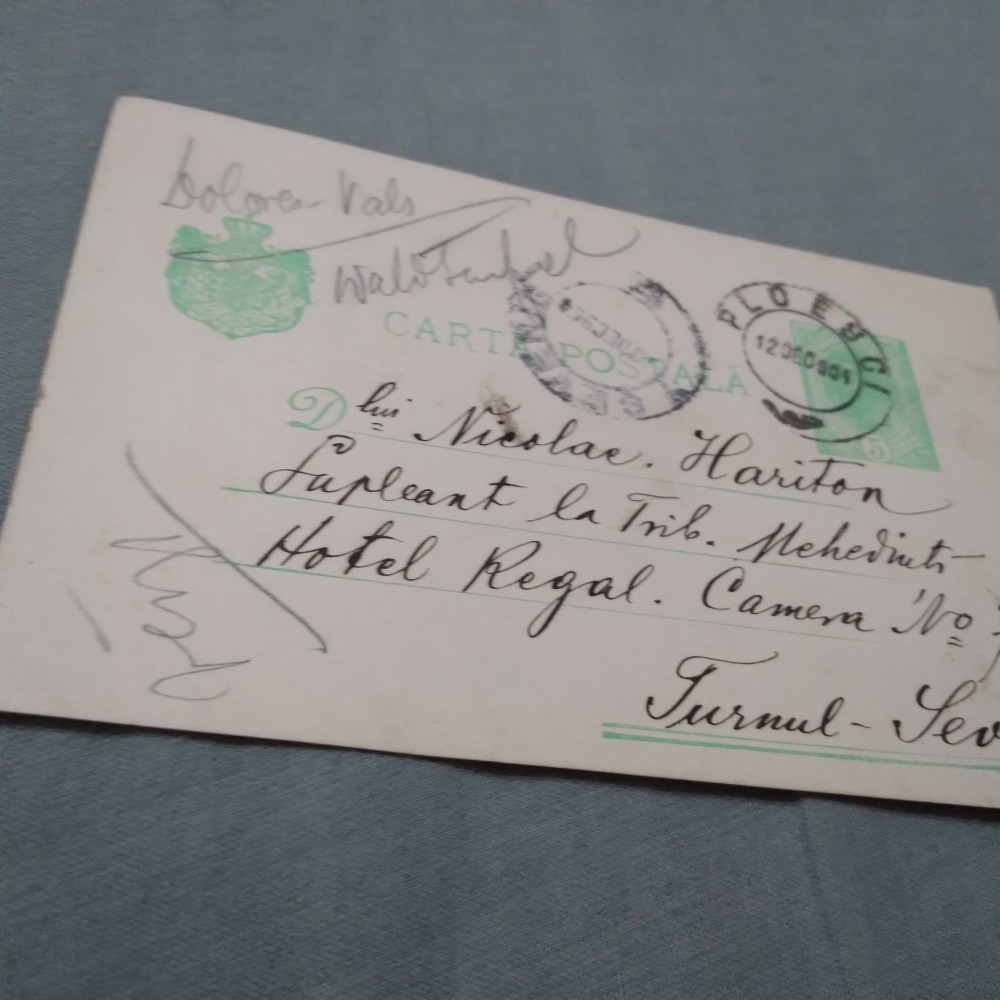 Dolores Vals
Waldteufel
CARTA POSTALĂ
PLOESCI
12 DEC 904
5
Dlui Nicolae. Hariton
Supleant la Trib. Mehedinti
Hotel Regal. Camera No
Turnul-Sev